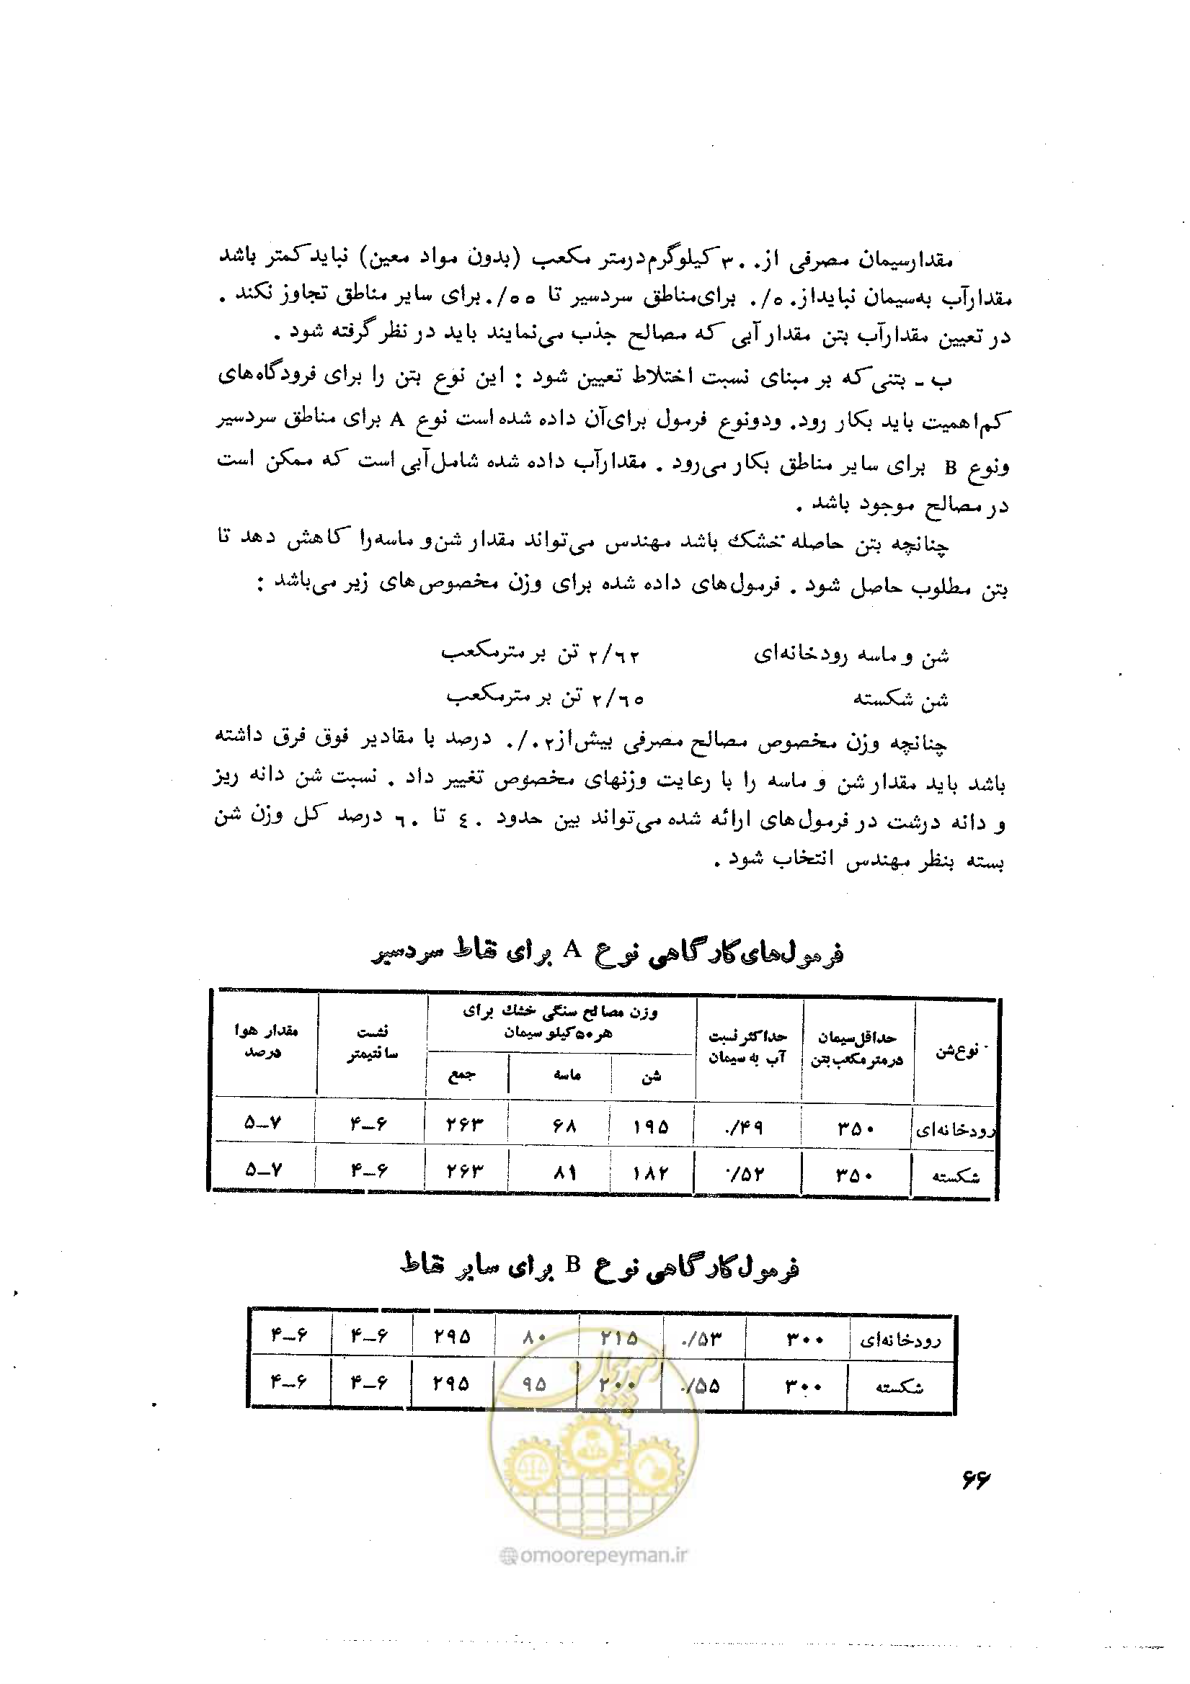 مقدارسیمان مصرفی از ۳۰۰ کیلوگرم درمتر مکعب (بدون مواد معین) نباید کمتر باشد
مقدارآب به‌سیمان نبایداز ۰/۵۰ برای‌مناطق سردسیر تا ۰/۵۵ برای سایر مناطق تجاوز نکند .
در تعیین مقدارآب بتن مقدار آبی که مصالح جذب می‌نمایند باید در نظر گرفته شود .
ب ـ بتنی‌که بر مبنای نسبت اختلاط تعیین شود : این نوع بتن را برای فرودگاه‌های
کم‌اهمیت باید بکار رود. ودونوع فرمول برای‌آن داده شده است نوع A برای مناطق سردسیر
ونوع B برای سایر مناطق بکار می‌رود . مقدارآب داده شده شامل‌آبی است که ممکن است
در مصالح موجود باشد .
چنانچه بتن حاصله خشک باشد مهندس می‌تواند مقدار شن‌و ماسه‌را کاهش دهد تا
بتن مطلوب حاصل شود . فرمول‌های داده شده برای وزن مخصوص‌های زیر می‌باشد :
شن و ماسه رودخانه‌ای ۲/۶۲ تن بر مترمکعب
شن شکسته ۲/۶۵ تن بر مترمکعب
چنانچه وزن مخصوص مصالح مصرفی بیش‌از ۰/۰۲ درصد با مقادیر فوق فرق داشته
باشد باید مقدار شن و ماسه را با رعایت وزنهای مخصوص تغییر داد . نسبت شن دانه ریز
و دانه درشت در فرمول‌های ارائه شده می‌تواند بین حدود ۴۰ تا ۶۰ درصد کل وزن شن
بسته بنظر مهندس انتخاب شود .
فرمول‌های‌کارگاهی نوع A برای نقاط سردسیر
نوع‌شن حداقل‌سیمان درمتر‌مکعب‌بتن حداکثر نسبت آب به سیمان وزن مصالح سنگی خشک برای هر ۵۰ کیلو سیمان نشست سانتیمتر مقدار هوا درصد
شن ماسه جمع
رودخانه‌ای ۳۵۰ ۰/۴۹ ۱۹۵ ۶۸ ۲۶۳ ۴-۶ ۵-۷
شکسته ۳۵۰ ۰/۵۲ ۱۸۲ ۸۱ ۲۶۳ ۴-۶ ۵-۷
فرمول‌کارگاهی نوع B برای سایر نقاط
رودخانه‌ای ۳۰۰ ۰/۵۳ ۲۱۵ ۸۰ ۲۹۵ ۴-۶ ۴-۶
شکسته ۳۰۰ ۰/۵۵ ۲۰۰ ۹۵ ۲۹۵ ۴-۶ ۴-۶
امور پیمان
۶۶
@omoorepeyman.ir